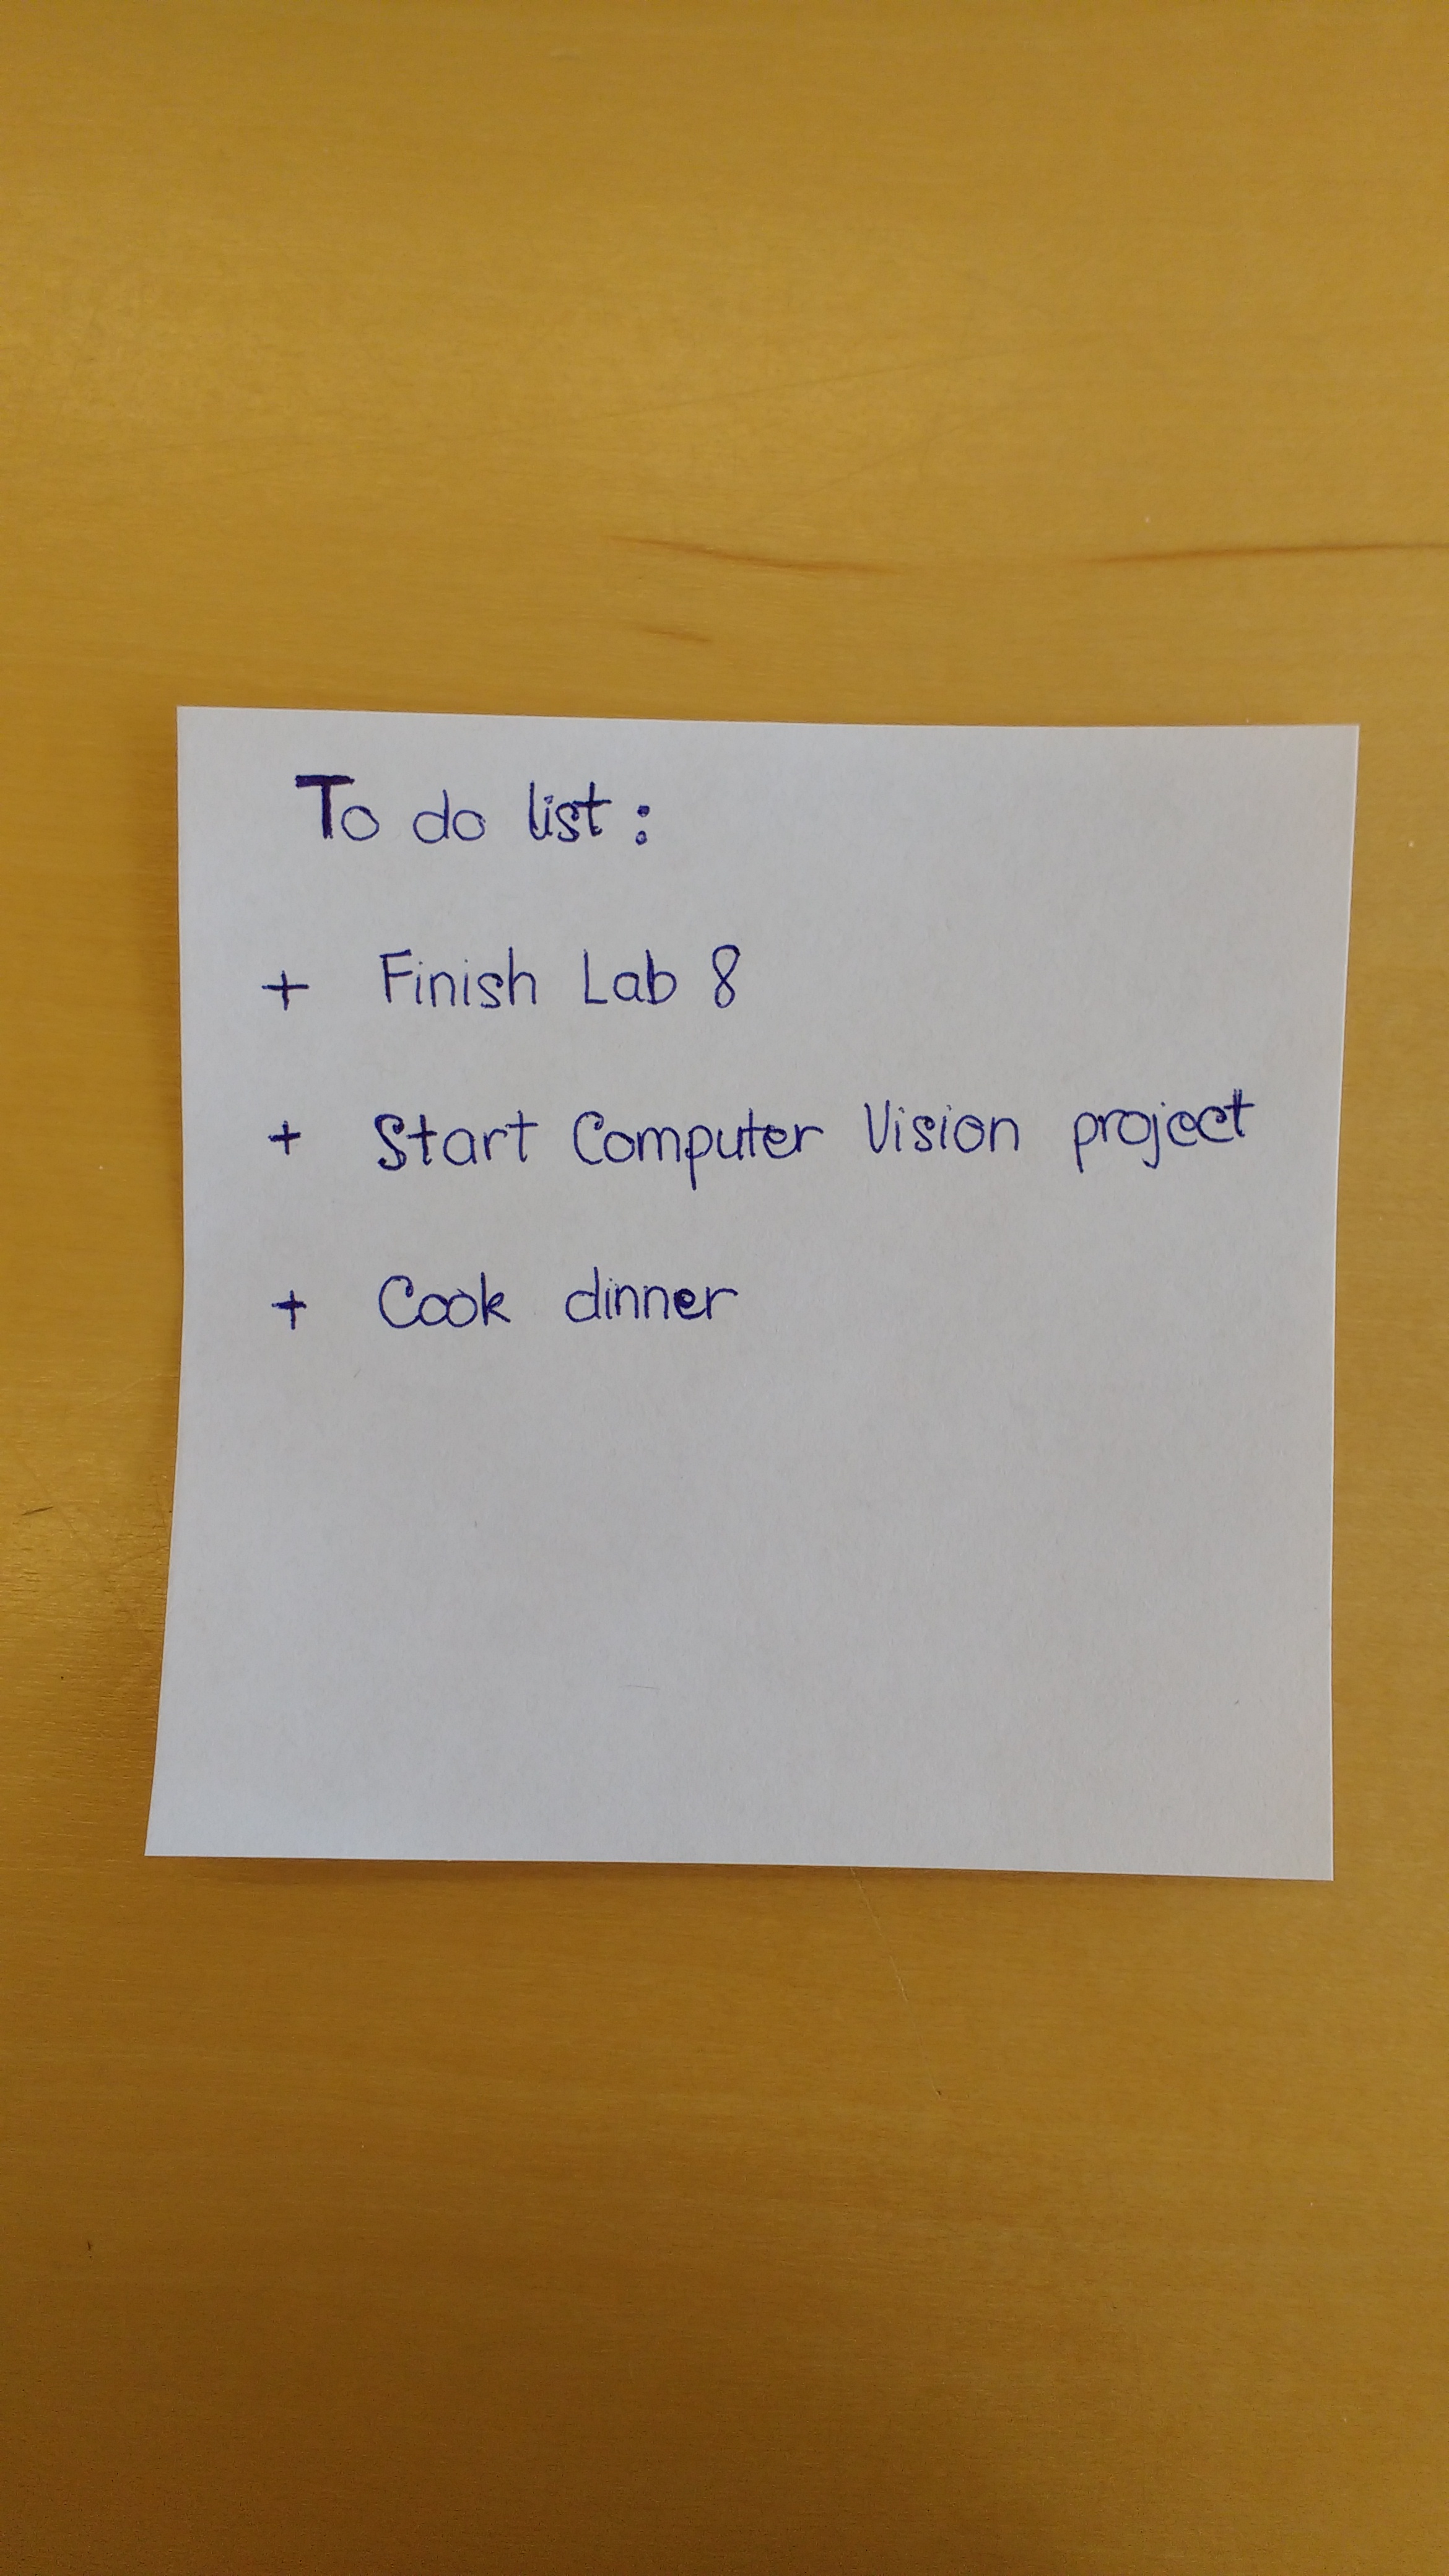 To do list :
+ Finish Lab 8
+ Start Computer Vision project
+ Cook dinner